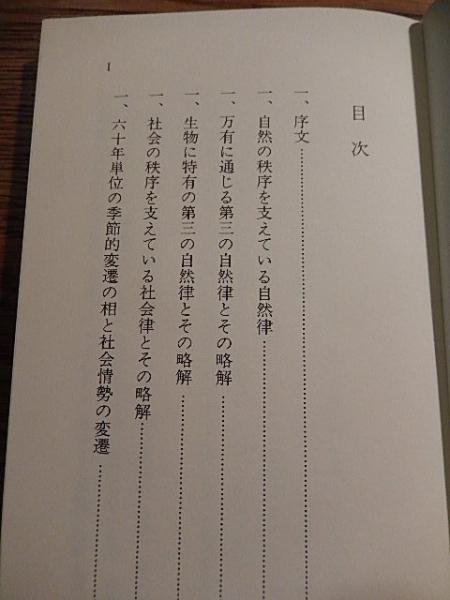 目次
一、序文……………………
一、自然の秩序を支えている自然律……………………
一、万有に通じる第三の自然律とその略解……………………
一、生物に特有の第三の自然律とその略解……………………
一、社会の秩序を支えている社会律とその略解……………………
一、六十年単位の季節的変遷の相と社会情勢の変遷……………………
1